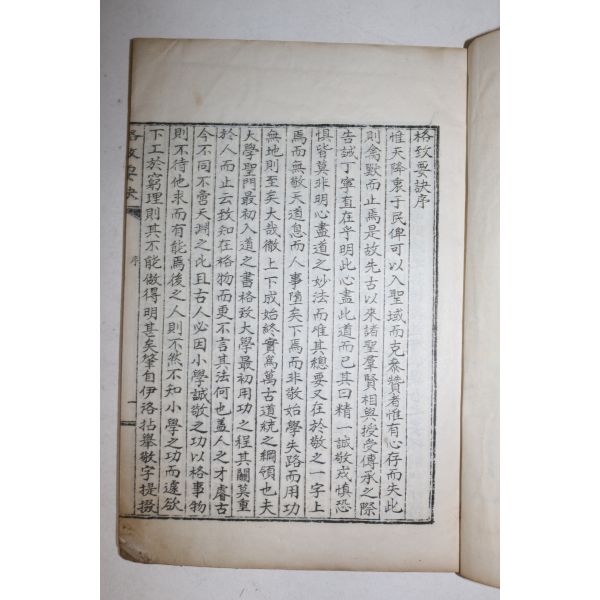 格致要訣序
惟天降衷于民俾可以入聖域而克叅贊者惟有心存而失此
則禽獸而止焉是故先古以來諸聖羣賢相與授受傳承之際
告誡丁寧直在乎明此心盡此道而已其曰精一誠敬戒慎恐
惧皆莫非明心盡道之妙法而惟其總要又在於敬之一字上
焉而無敬天道息而人事墮矣下焉而非敬始學失路而用功
無地則至矣大哉徹上下成始終實爲萬古道統之綱領也夫
大學聖門最初入道之書格致大學最初用功之程其關莫重
於人而止云致知在格物而更不言其法何也盖人之才睿古
今不同不啻天淵之比且古人必因小學誠敬之功以格事物
則不待他求而有能焉後之人則不然不知小學之功而遽欲
下工於窮理則其不能做得明甚矣肇自伊洛拈擧敬字提掇
格致要訣
序
一